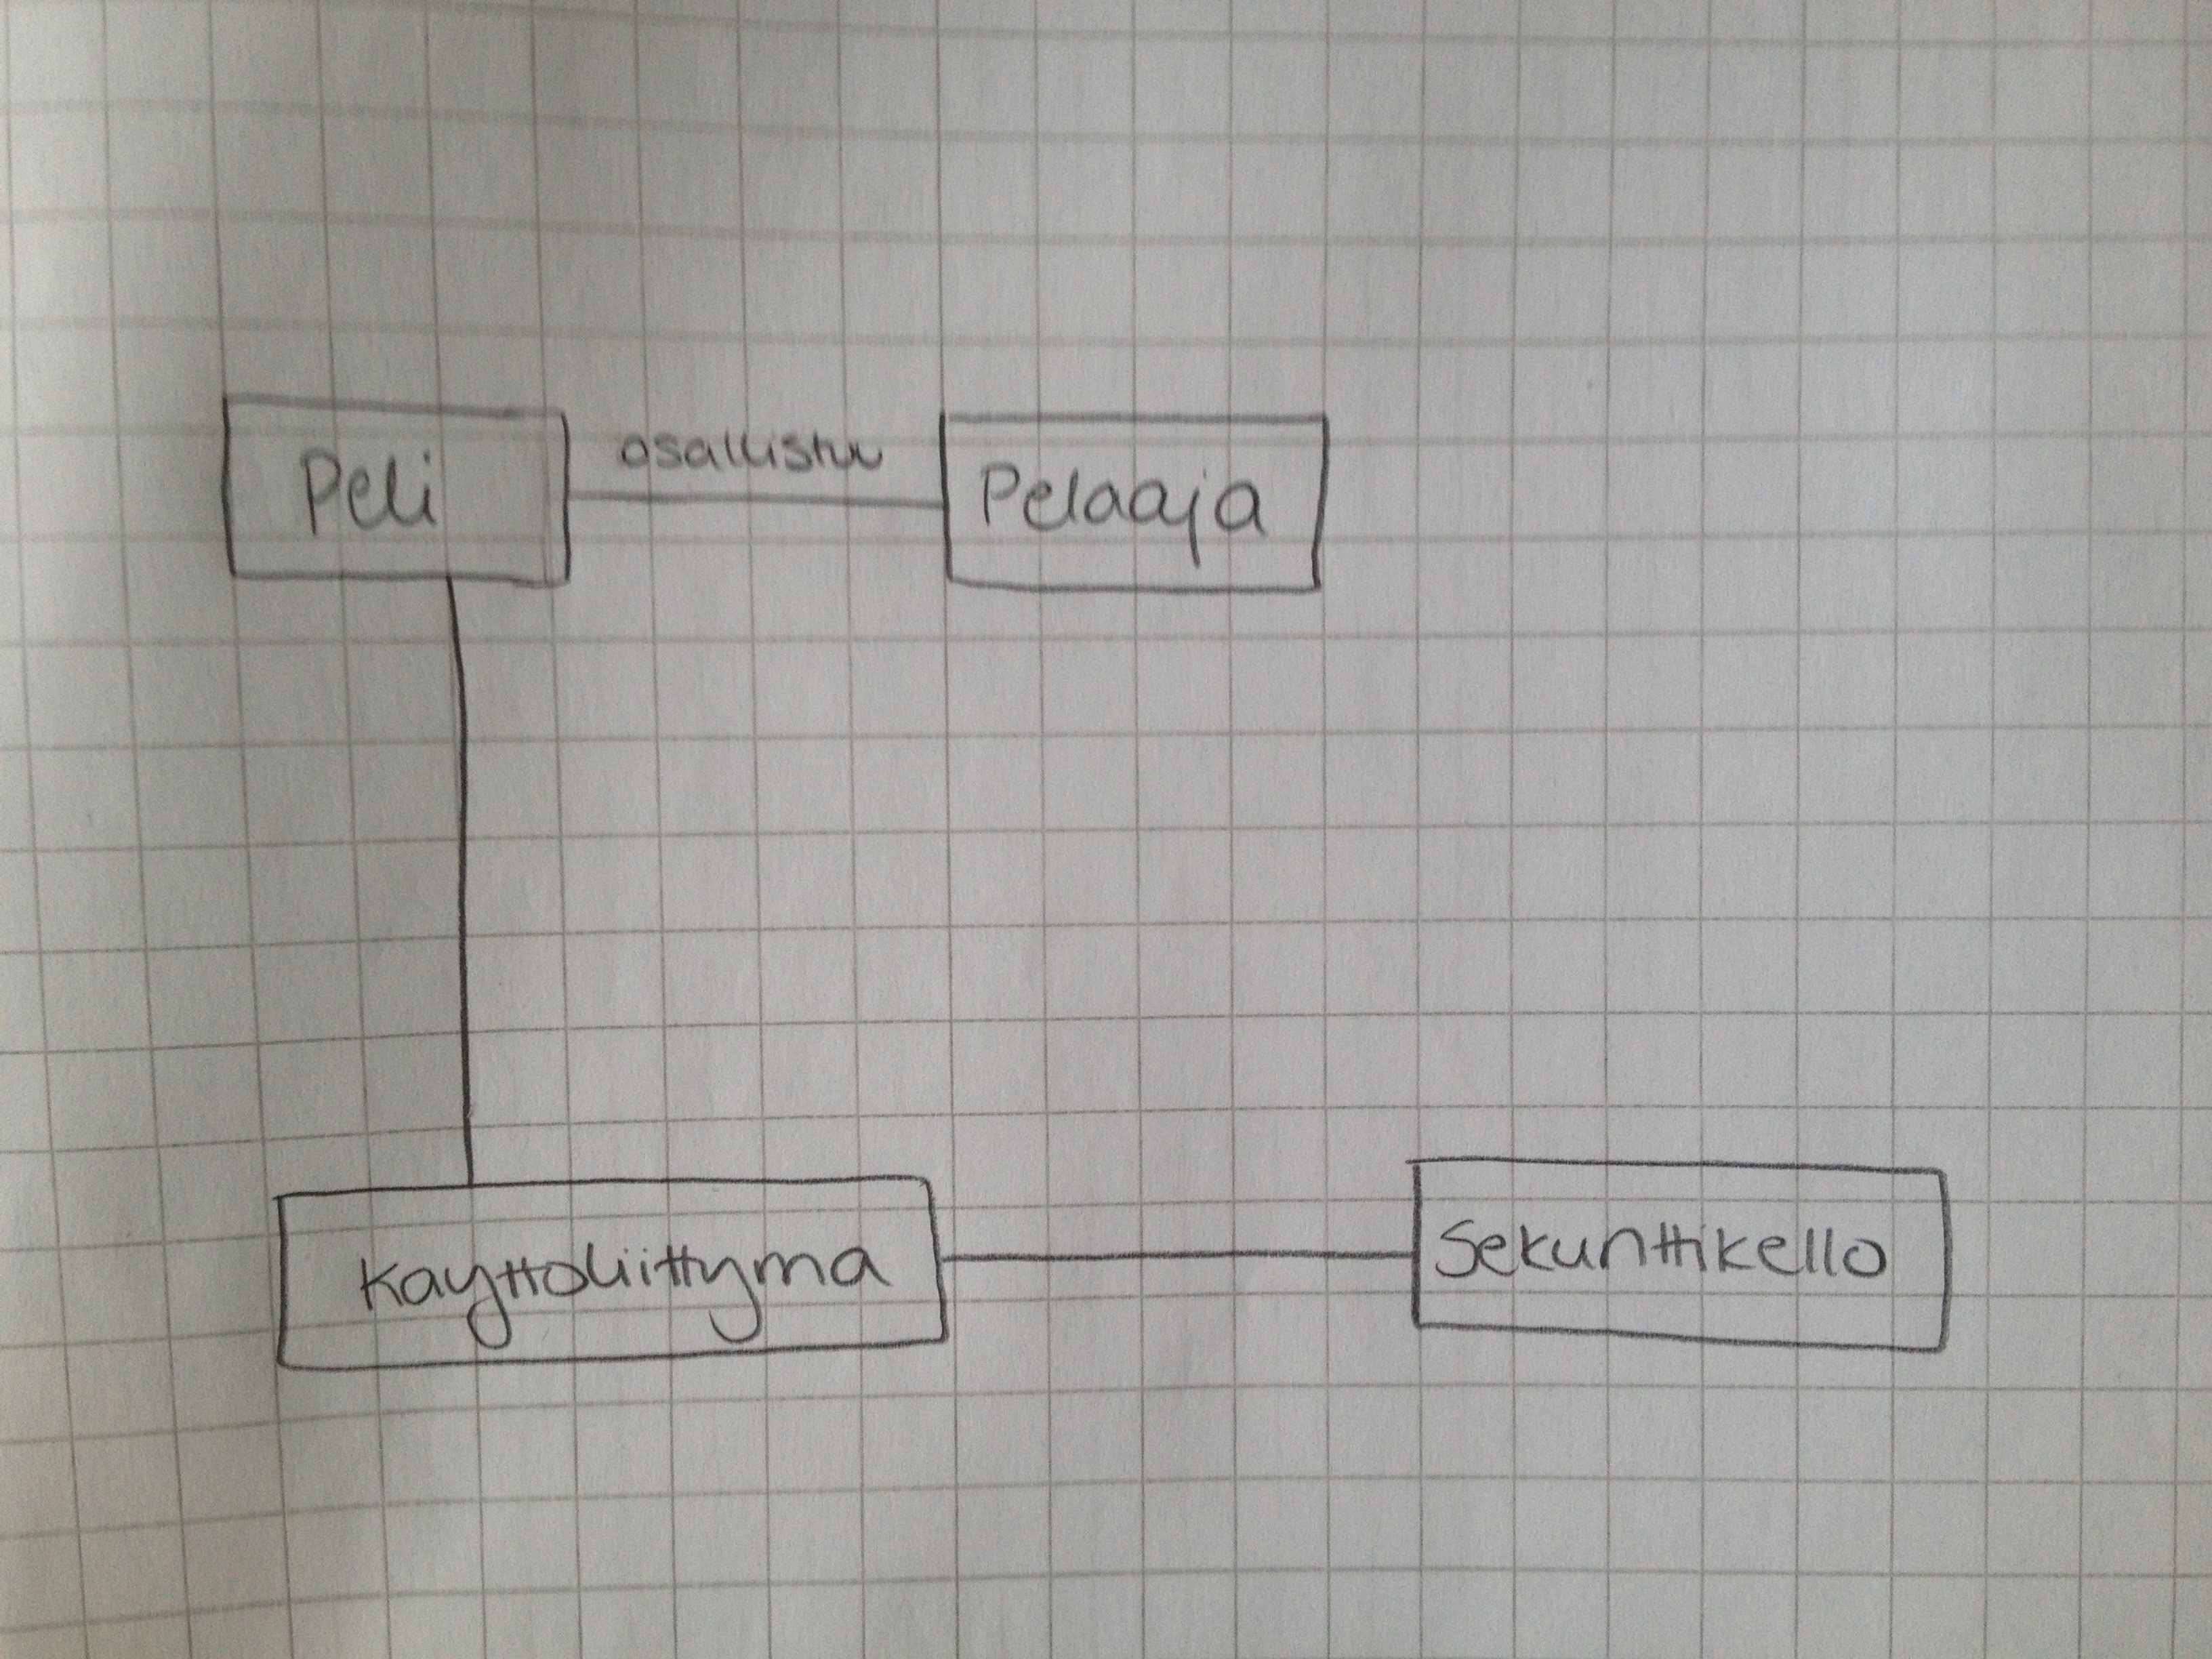 Peli
osallistuu
Pelaaja
Kayttoliittyma
Sekuntikello